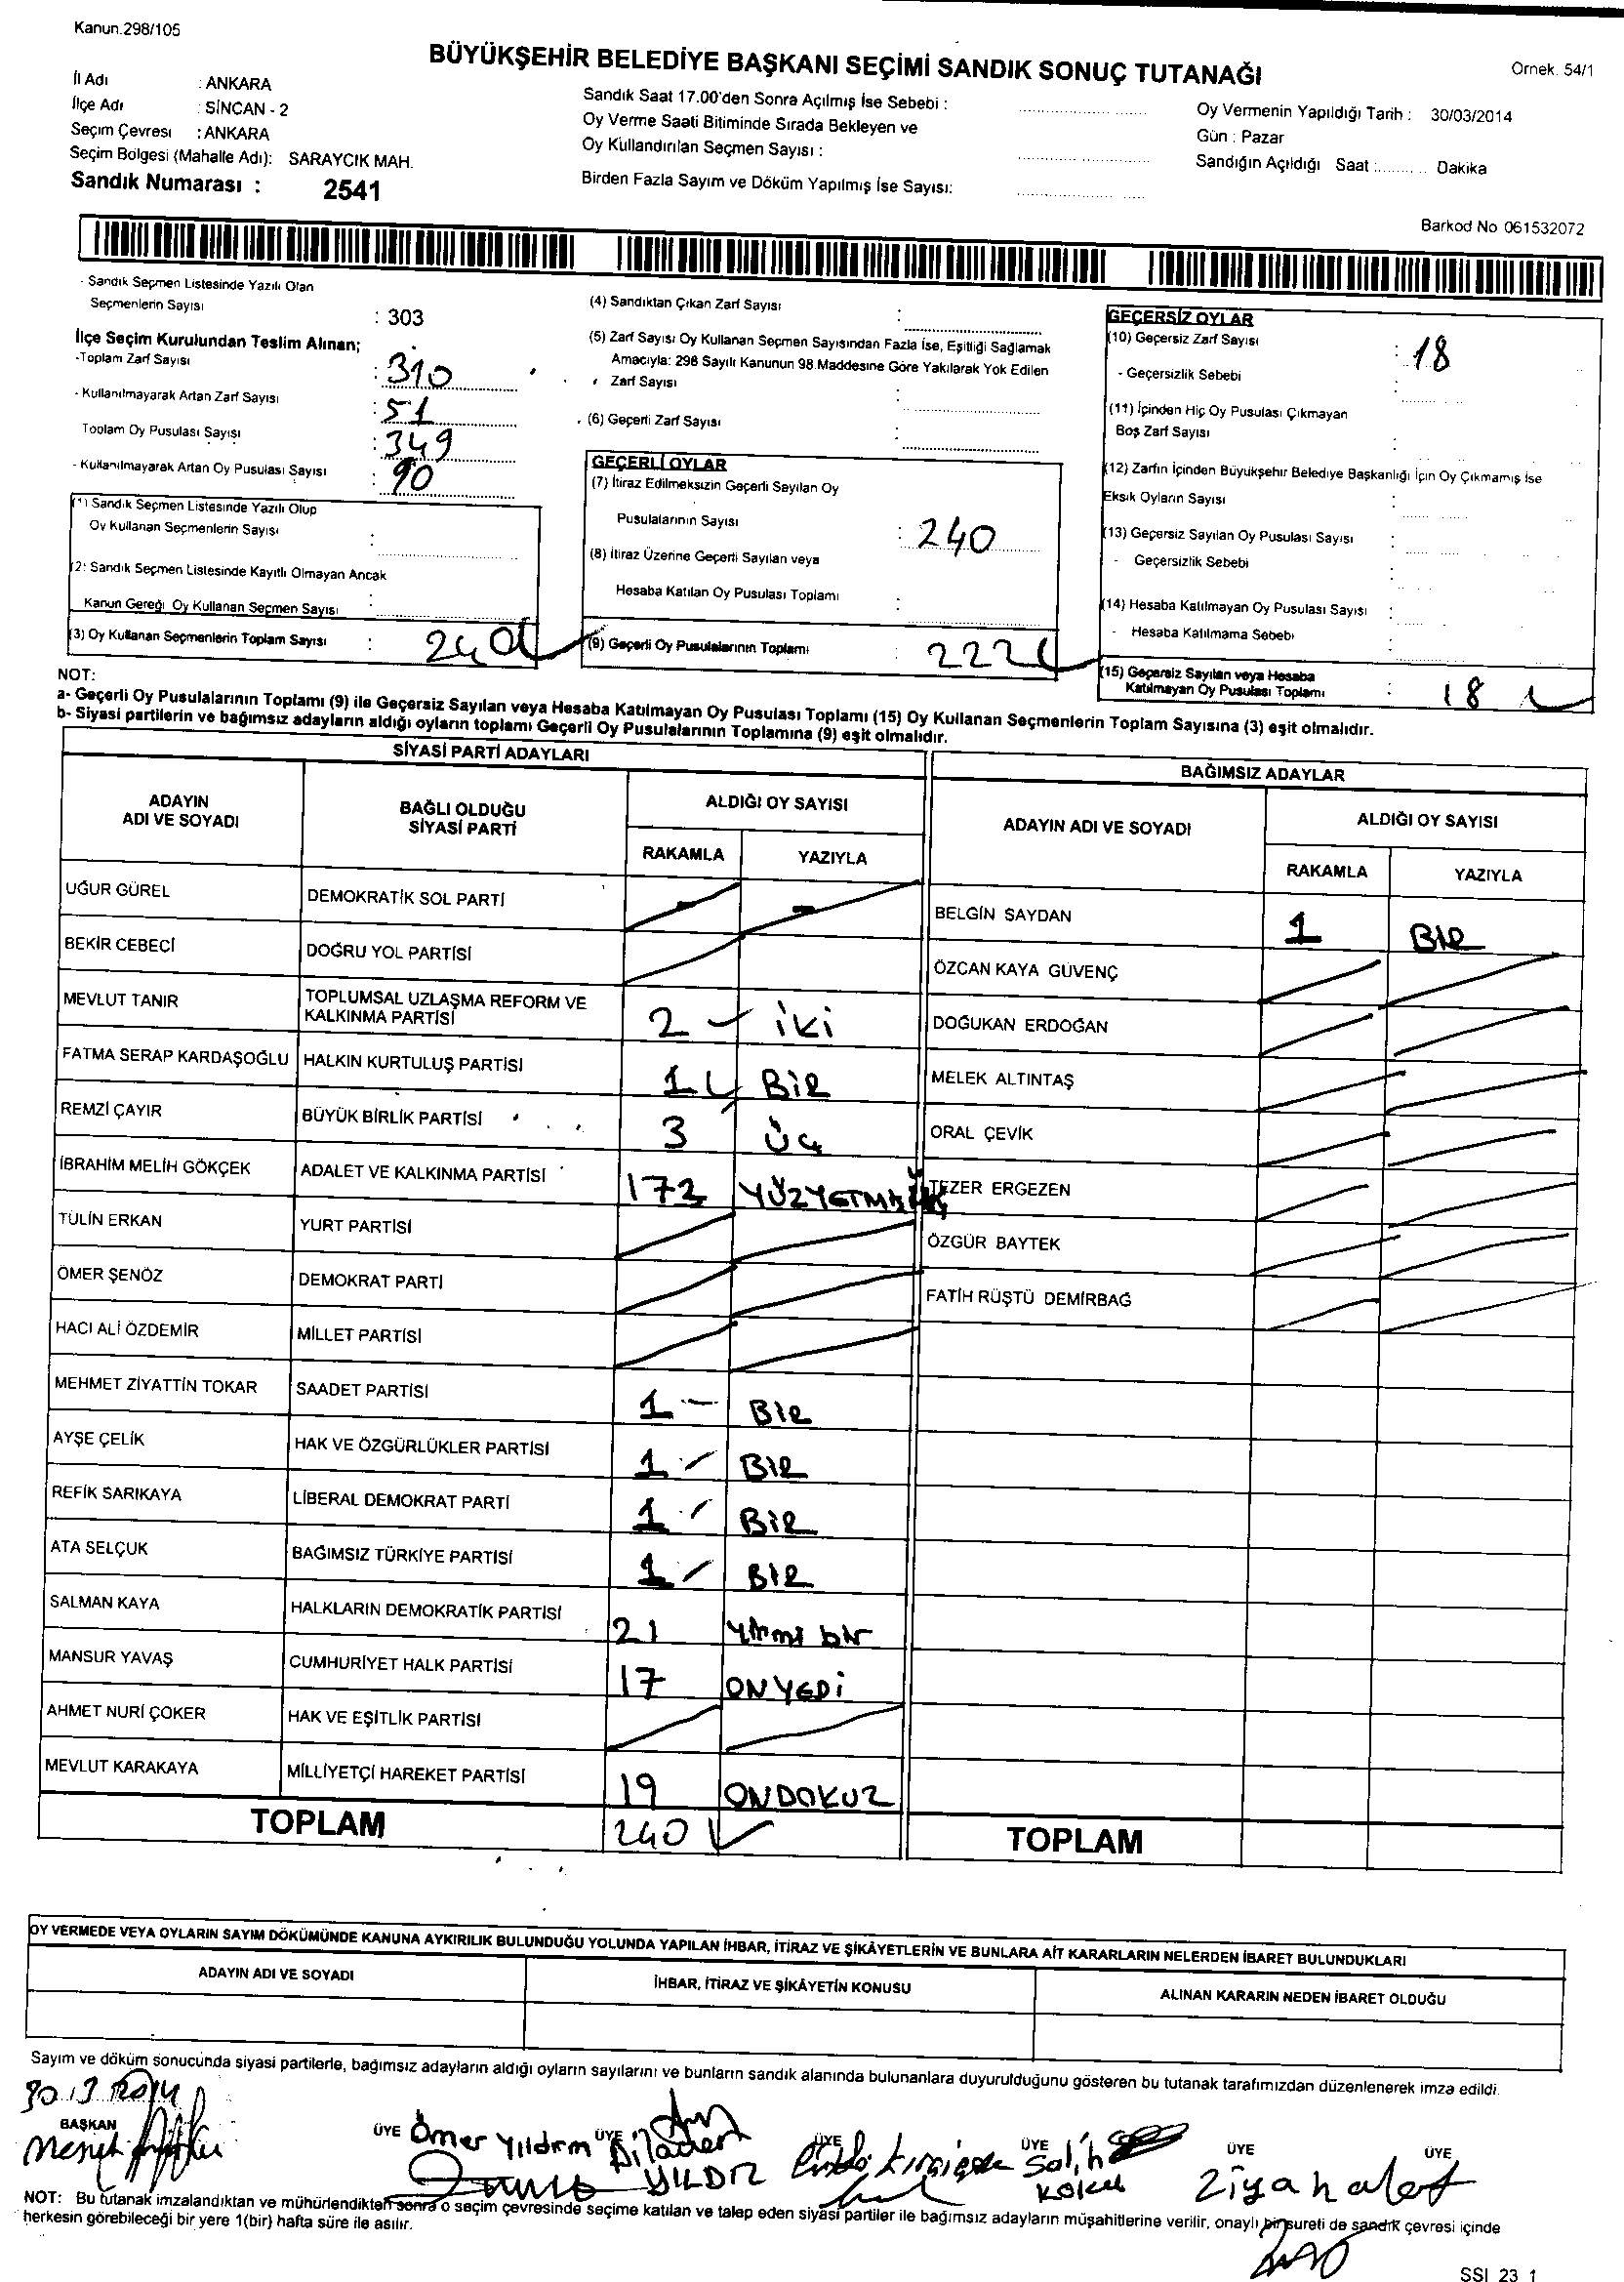 Kanun.298/105
BÜYÜKŞEHİR BELEDİYE BAŞKANI SEÇİMİ SANDIK SONUÇ TUTANAĞI
Örnek. 54/1
İl Adı : ANKARA
İlçe Adı : SİNCAN - 2
Seçim Çevresi : ANKARA
Seçim Bölgesi (Mahalle Adı): SARAYCIK MAH.
Sandık Numarası : 2541
Sandık Saat 17.00'den Sonra Açılmış İse Sebebi :
Oy Verme Saati Bitiminde Sırada Bekleyen ve
Oy Kullandırılan Seçmen Sayısı :
Birden Fazla Sayım ve Döküm Yapılmış İse Sayısı:
Oy Vermenin Yapıldığı Tarih : 30/03/2014
Gün : Pazar
Sandığın Açıldığı Saat :.......... .. Dakika
Barkod No 061532072
- Sandık Seçmen Listesinde Yazılı Olan
Seçmenlerin Sayısı : 303
İlçe Seçim Kurulundan Teslim Alınan;
-Toplam Zarf Sayısı : 310
- Kullanılmayarak Artan Zarf Sayısı : 51
Toplam Oy Pusulası Sayısı : 349
- Kullanılmayarak Artan Oy Pusulası Sayısı : 90
(1) Sandık Seçmen Listesinde Yazılı Olup
Oy Kullanan Seçmenlerin Sayısı :
(2) Sandık Seçmen Listesinde Kayıtlı Olmayan Ancak
Kanun Gereği Oy Kullanan Seçmen Sayısı :
(3) Oy Kullanan Seçmenlerin Toplam Sayısı : 240
(4) Sandıktan Çıkan Zarf Sayısı :
(5) Zarf Sayısı Oy Kullanan Seçmen Sayısından Fazla İse, Eşitliği Sağlamak
Amacıyla: 298 Sayılı Kanunun 98.Maddesine Göre Yakılarak Yok Edilen
Zarf Sayısı :
(6) Geçerli Zarf Sayısı :
GEÇERLİ OYLAR
(7) İtiraz Edilmeksizin Geçerli Sayılan Oy
Pusulalarının Sayısı : 240
(8) İtiraz Üzerine Geçerli Sayılan veya
Hesaba Katılan Oy Pusulası Toplamı :
(9) Geçerli Oy Pusulalarının Toplamı : 222
GEÇERSİZ OYLAR
(10) Geçersiz Zarf Sayısı : 18
- Geçersizlik Sebebi :
(11) İçinden Hiç Oy Pusulası Çıkmayan
Boş Zarf Sayısı :
(12) Zarfın İçinden Büyükşehir Belediye Başkanlığı İçin Oy Çıkmamış İse
Eksik Oyların Sayısı :
(13) Geçersiz Sayılan Oy Pusulası Sayısı :
- Geçersizlik Sebebi :
(14) Hesaba Katılmayan Oy Pusulası Sayısı :
- Hesaba Katılmama Sebebi :
(15) Geçersiz Sayılan veya Hesaba
Katılmayan Oy Pusulası Toplamı : 18
NOT:
a- Geçerli Oy Pusulalarının Toplamı (9) ile Geçersiz Sayılan veya Hesaba Katılmayan Oy Pusulası Toplamı (15) Oy Kullanan Seçmenlerin Toplam Sayısına (3) eşit olmalıdır.
b- Siyasi partilerin ve bağımsız adayların aldığı oyların toplamı Geçerli Oy Pusulalarının Toplamına (9) eşit olmalıdır.
SİYASİ PARTİ ADAYLARI
ADAYIN ADI VE SOYADI
BAĞLI OLDUĞU SİYASİ PARTİ
ALDIĞI OY SAYISI
RAKAMLA YAZIYLA
UĞUR GÜREL DEMOKRATİK SOL PARTİ - -
BEKİR CEBECİ DOĞRU YOL PARTİSİ
MEVLUT TANIR TOPLUMSAL UZLAŞMA REFORM VE KALKINMA PARTİSİ 2 iki
FATMA SERAP KARDAŞOĞLU HALKIN KURTULUŞ PARTİSİ 1 BiR
REMZİ ÇAYIR BÜYÜK BİRLİK PARTİSİ 3 üç
İBRAHİM MELİH GÖKÇEK ADALET VE KALKINMA PARTİSİ 173
TÜLİN ERKAN YURT PARTİSİ
ÖMER ŞENÖZ DEMOKRAT PARTİ
HACI ALİ ÖZDEMİR MİLLET PARTİSİ
MEHMET ZİYATTİN TOKAR SAADET PARTİSİ 1 BIR
AYŞE ÇELİK HAK VE ÖZGÜRLÜKLER PARTİSİ 1 BIR
REFİK SARIKAYA LİBERAL DEMOKRAT PARTİ 1 BiR
ATA SELÇUK BAĞIMSIZ TÜRKİYE PARTİSİ 1 BIR
SALMAN KAYA HALKLARIN DEMOKRATİK PARTİSİ 21 yirmi bir
MANSUR YAVAŞ CUMHURİYET HALK PARTİSİ 17 ONYEDi
AHMET NURİ ÇOKER HAK VE EŞİTLİK PARTİSİ
MEVLUT KARAKAYA MİLLİYETÇİ HAREKET PARTİSİ 19 ONDOKUZ
TOPLAM 240
BAĞIMSIZ ADAYLAR
ADAYIN ADI VE SOYADI
ALDIĞI OY SAYISI
RAKAMLA YAZIYLA
BELGİN SAYDAN 1 BIR
ÖZCAN KAYA GÜVENÇ
DOĞUKAN ERDOĞAN
MELEK ALTINTAŞ
ORAL ÇEVİK
TEZER ERGEZEN
ÖZGÜR BAYTEK
FATİH RÜŞTÜ DEMİRBAĞ
TOPLAM
OY VERMEDE VEYA OYLARIN SAYIM DÖKÜMÜNDE KANUNA AYKIRILIK BULUNDUĞU YOLUNDA YAPILAN İHBAR, İTİRAZ VE ŞİKÂYETLERİN VE BUNLARA AİT KARARLARIN NELERDEN İBARET BULUNDUKLARI
ADAYIN ADI VE SOYADI
İHBAR, İTİRAZ VE ŞİKÂYETİN KONUSU
ALINAN KARARIN NEDEN İBARET OLDUĞU
Sayım ve döküm sonucunda siyasi partilerle, bağımsız adayların aldığı oyların sayılarını ve bunların sandık alanında bulunanlara duyurulduğunu gösteren bu tutanak tarafımızdan düzenlenerek imza edildi.
BAŞKAN ÜYE ÜYE ÜYE ÜYE ÜYE ÜYE
Ömer Yıldırım
YILDIZ
Salih
NOT: Bu tutanak imzalandıktan ve mühürlendikten sonra o seçim çevresinde seçime katılan ve talep eden siyasi partiler ile bağımsız adayların müşahitlerine verilir, onaylı bir sureti de sandık çevresi içinde
herkesin görebileceği bir yere 1(bir) hafta süre ile asılır.
SSI 23 1